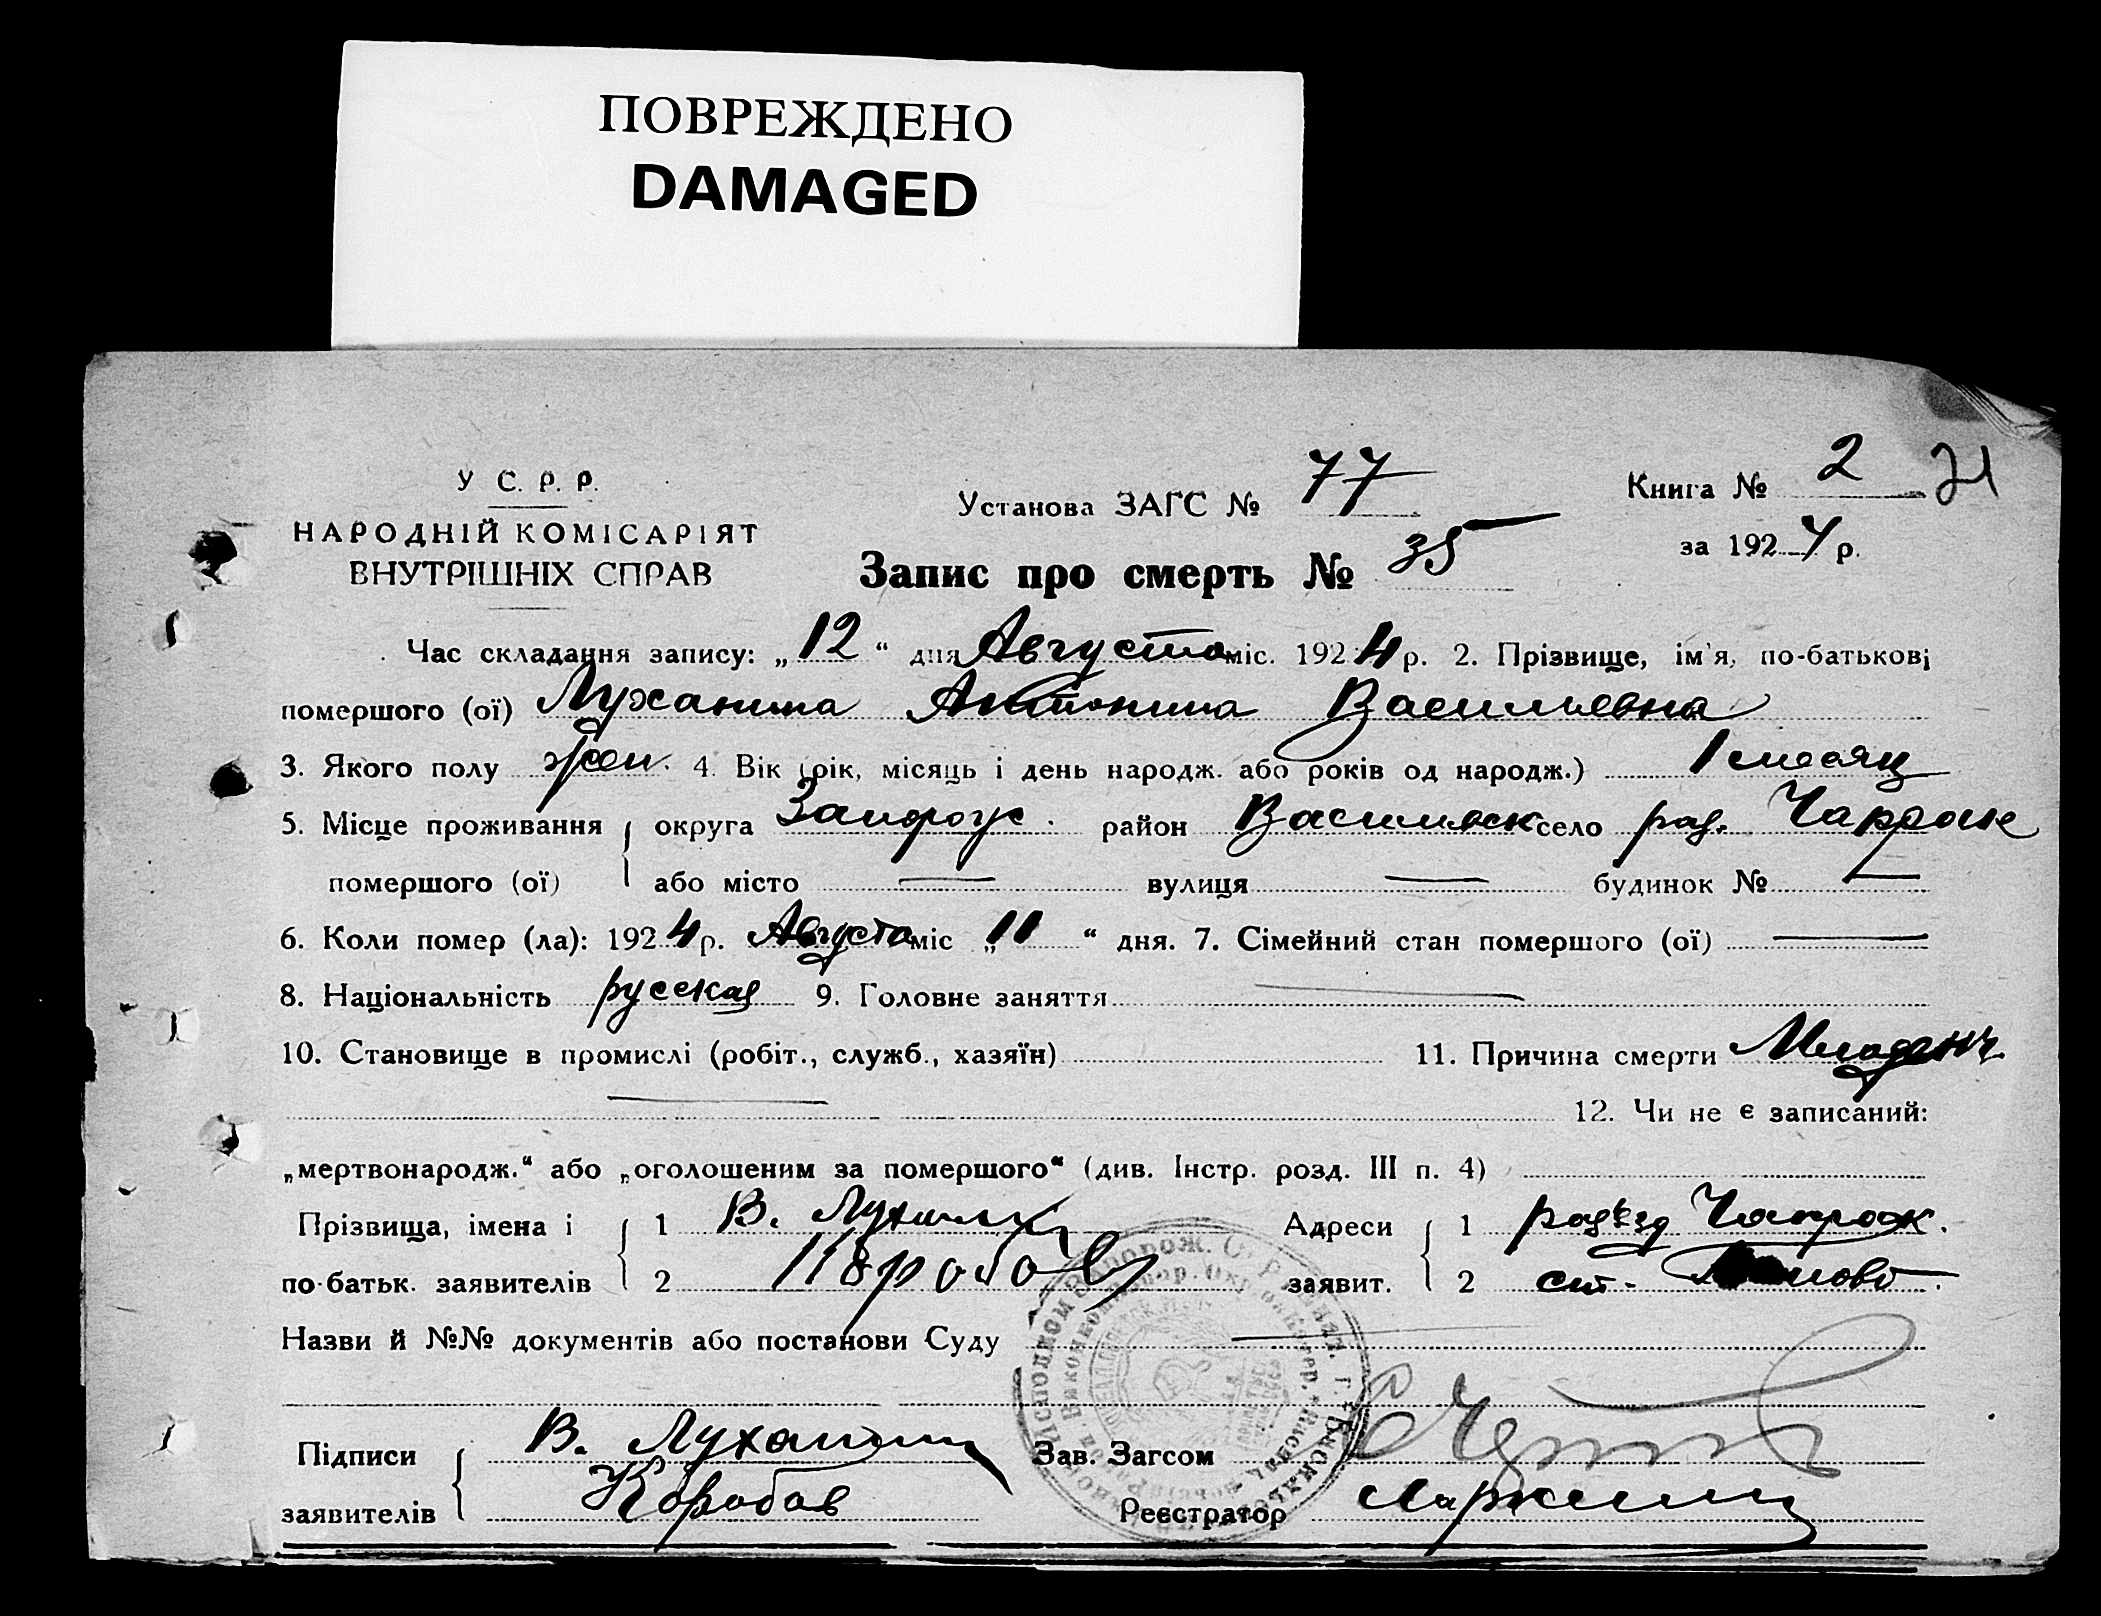 ПОВРЕЖДЕНО
DAMAGED
У С. Р. Р.
НАРОДНІЙ КОМІСАРІЯТ
ВНУТРІШНІХ СПРАВ
Установа ЗАГС № 77
Книга № 2 21
за 1924 р.
Запис про смерть № 35
Час складання запису: „12“ дня Августа міс. 1924 р. 2. Прізвище, ім'я, по-батькові
помершого (ої) Луханина Антонина Васильевна
3. Якого полу жен. 4. Вік (рік, місяць і день народж. або років од народж.) 1 месяц
5. Місце проживання округа Запорож. район Васильевск село раз.
помершого (ої) або місто — вулиця — будинок № —
6. Коли помер (ла): 1924 р. Августа міс „11“ дня. 7. Сімейний стан помершого (ої) —
8. Національність русская 9. Головне заняття —
10. Становище в промислі (робіт., служб., хазяїн) 11. Причина смерти Младенч.
— 12. Чи не є записаний:
„мертвонародж.“ або „оголошеним за помершого“ (див. Інстр. розд. III п. 4)
Прізвища, імена і 1 В. Луханин Адреси 1 разъезд
по-батьк. заявителів 2 заявит. 2 ст.
Назви й №№ документів або постанови Суду —
Підписи В. Луханин Зав. Загсом
заявителів Коробов Реєстратор